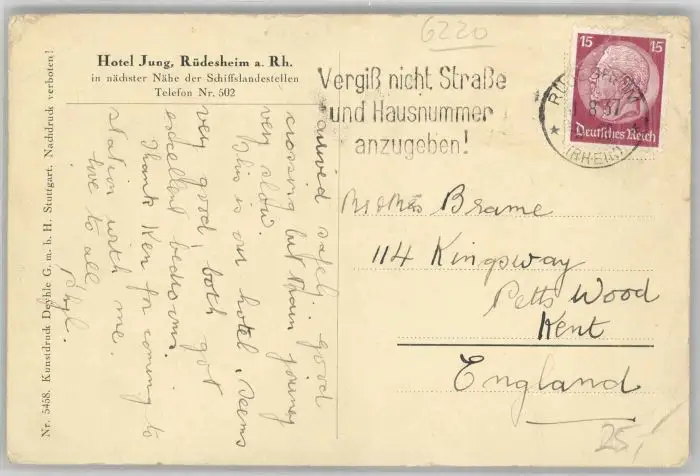 6220
Hotel Jung, Rüdesheim a. Rh.
in nächster Nähe der Schiffslandestellen
Telefon Nr. 502
Vergiß nicht Straße
und Hausnummer
anzugeben!
15 15
Deutsches Reich
8 37
(RHEIN)
Arrived safely. good
crossing but train journey
very slow.
This is our hotel, seems
very good, both got
excellent bedrooms.
Thank Ken for coming to
station with me.
love to all,
Brame
114 Kingsway
Petts Wood
Kent
England
25,-
Nr. 5458. Kunstdruck Deyhle G. m. b. H. Stuttgart. Nachdruck verboten!